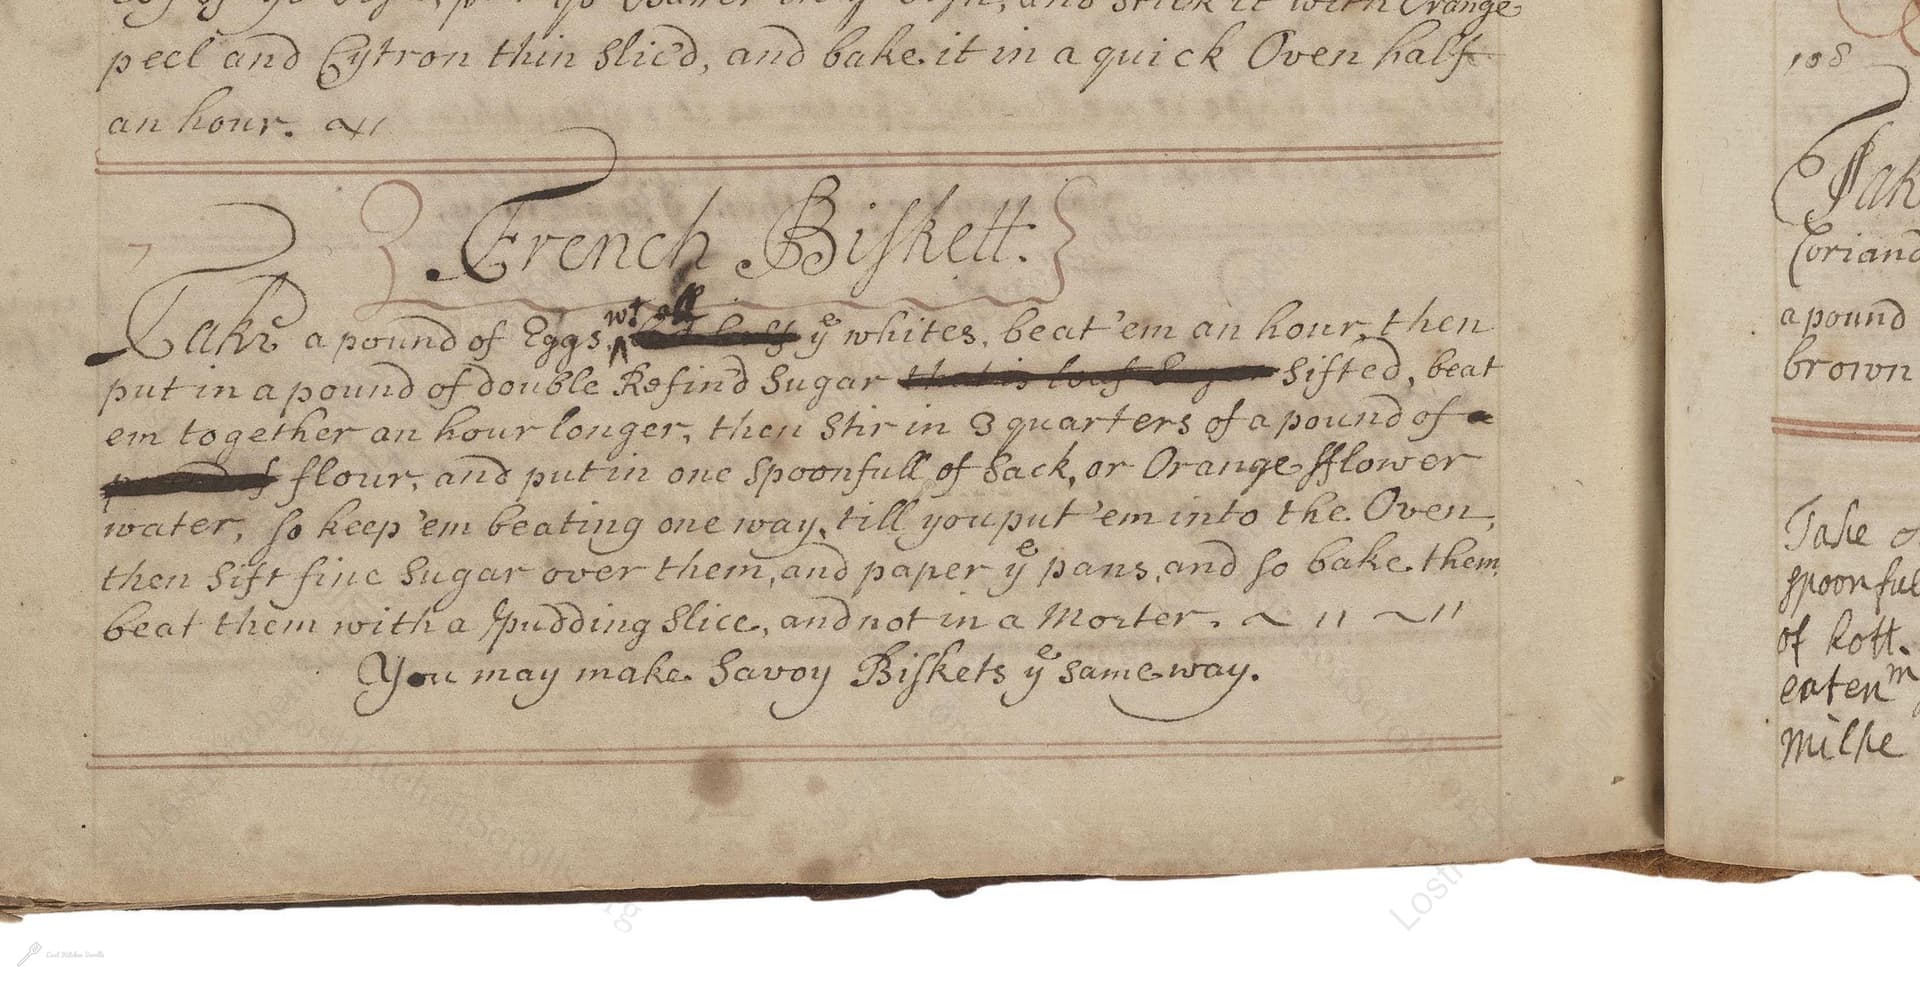 peel and Cytron thin Slic'd, and bake it in a quick Oven half
an hour.
French Biskett.
Take a pound of Eggs, wt all ye whites, beat 'em an hour, then
put in a pound of double Refin'd Sugar that is loaf Sugar Sifted, beat
em together an hour longer, then Stir in 3 quarters of a pound of a
pound of flour, and put in one Spoonfull of Sack, or Orange fflower
water, so keep 'em beating one way, till you put 'em into the Oven,
then Sift fine Sugar over them, and paper ye pans, and so bake them,
beat them with a pudding Slice, and not in a Morter.
You may make Savoy Biskets ye same way.
108
Tak
Coriand
a pound
brown
Take
spoonful
of Rott.
eaten
milke
LostKitchenScrolls
Lost Kitchen Scrolls